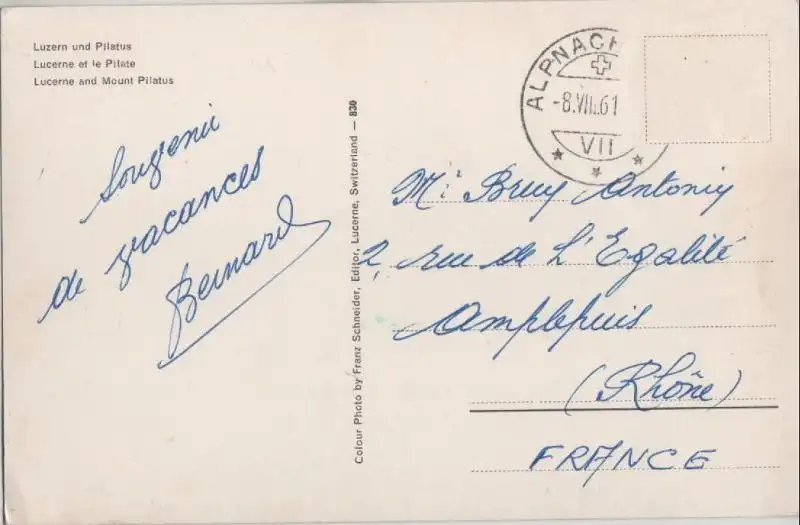 Luzern und Pilatus
Lucerne et le Pilate
Lucerne and Mount Pilatus
Souvenir
de vacances
Bernard
Colour Photo by Franz Schneider, Editor, Lucerne, Switzerland — 830
ALPNACH
-8.VII.61
VII
Mr Bruy Antoniy
2, rue de L'Egalité
Amplepuis
(Rhône)
FRANCE